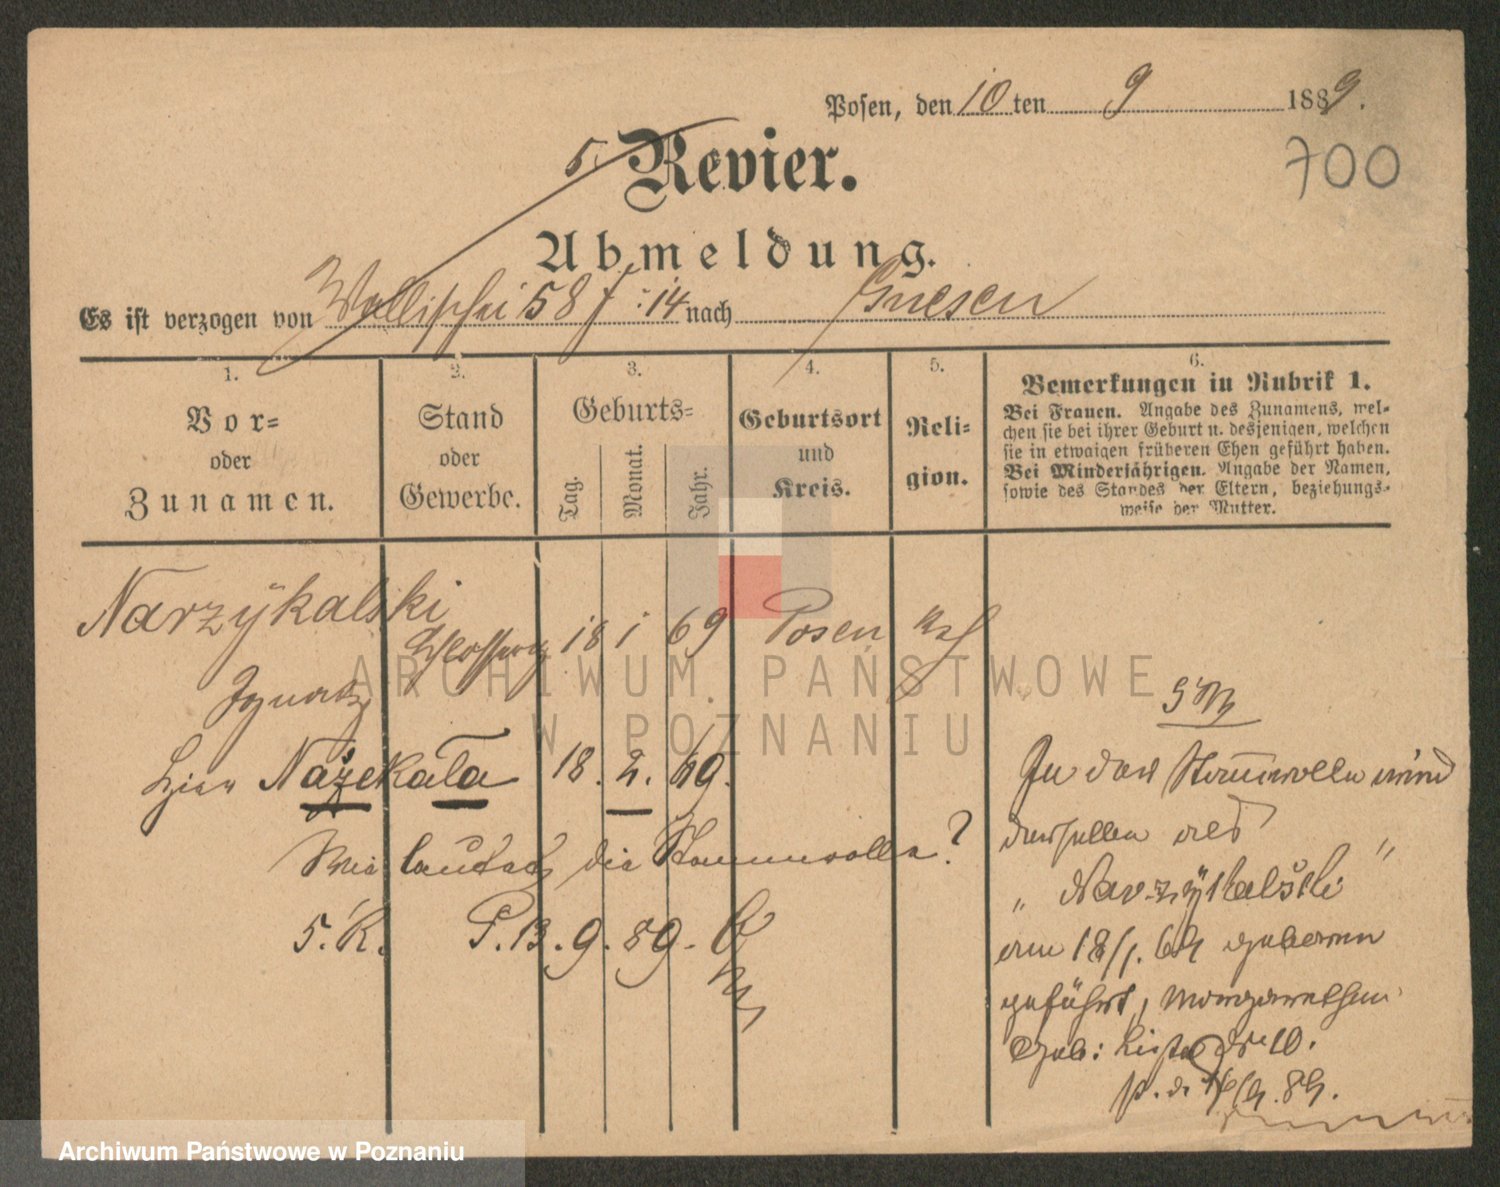 Posen, den 10 ten 9 1889.
700
5. Revier.
Abmeldung.
Es ist verzogen von Wallischei 58 f : 14 nach Gnesen
1.
Vor=
oder
Zunamen.
2.
Stand
oder
Gewerbe.
3.
Geburts=
Tag.
Monat.
Jahr.
4.
Geburtsort
und
Kreis.
5.
Reli=
gion.
6.
Bemerkungen in Rubrik 1.
Bei Frauen. Angabe des Zunamens, wel=
chen sie bei ihrer Geburt u. desjenigen, welchen
sie in etwaigen früheren Ehen geführt haben.
Bei Minderjährigen. Angabe der Namen,
sowie des Standes der Eltern, beziehungs=
weise der Mutter.
Narzÿkalski
Ignatz
18 1 69 Posen
Hier Nażekała 18. 2. 69.
Wie lautet die Stammrolle?
5. R. P. 13. 9. 89.
In der Stammrolle wird
derselbe als
„ Narzÿkalski "
am 18/1. 69 geboren
geführt, Margarethen
Geb: Liste No 10.
P. d. 16/9. 89.
ARCHIWUM PAŃSTWOWE
W POZNANIU
Archiwum Państwowe w Poznaniu